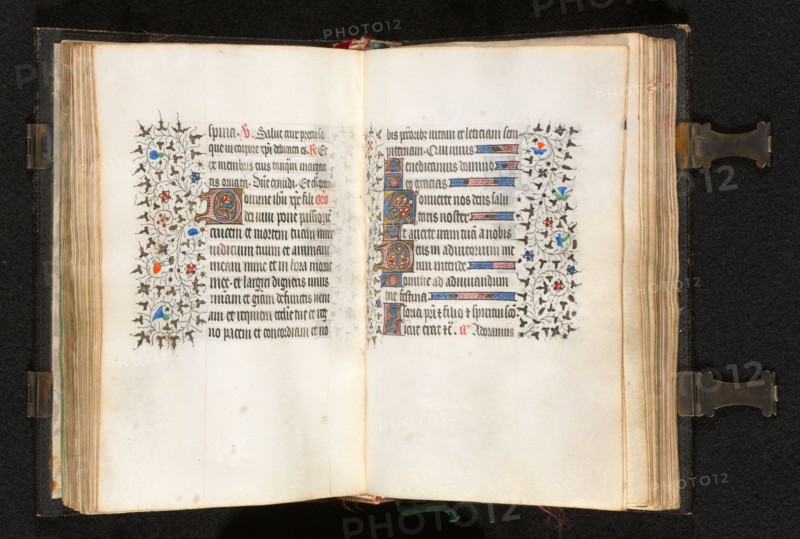 spina. V. Salue crux preciosa
que in corpore xpi dedicata es. R Et
ex membris eius tanquam margari
tis ornata. Dne exaudi. Et clamor
Domine ihu xpe fili oro
dei uiui pone passionem
crucem et mortem tuam inter
iudicium tuum et animam
meam nunc et in hora mortis
mee. et largiri digneris uiuis
misericordiam et gram defunctis ueni
am et requiem ecclie tue et reg
no pacem et concordiam et no
bis pctoribz uitam et leticiam sem
piternam. Qui uiuis
Benedicamus domino
Deo gracias
Conuerte nos deus salu
taris noster
Et auerte iram tuā a nobis
Deus in adiutorium me
um intende
Domine ad adiuuandum
me festina
Gloria pri et filio et spiritui sco
Sicut erat et c. a Adoramus
PHOTO12